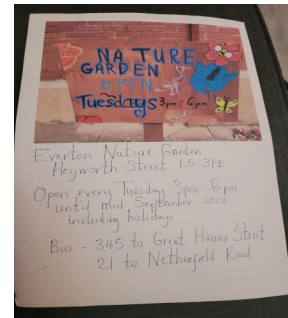 NATURE
GARDEN
OPEN
Tuesdays 3pm - 6pm
Everton Nature Garden
Heyworth Street L5 3PE
Open every Tuesday 3pm - 6pm
until mid September 2023
including holidays
Bus - 345 to Great Homer Street
21 to Netherfield Road